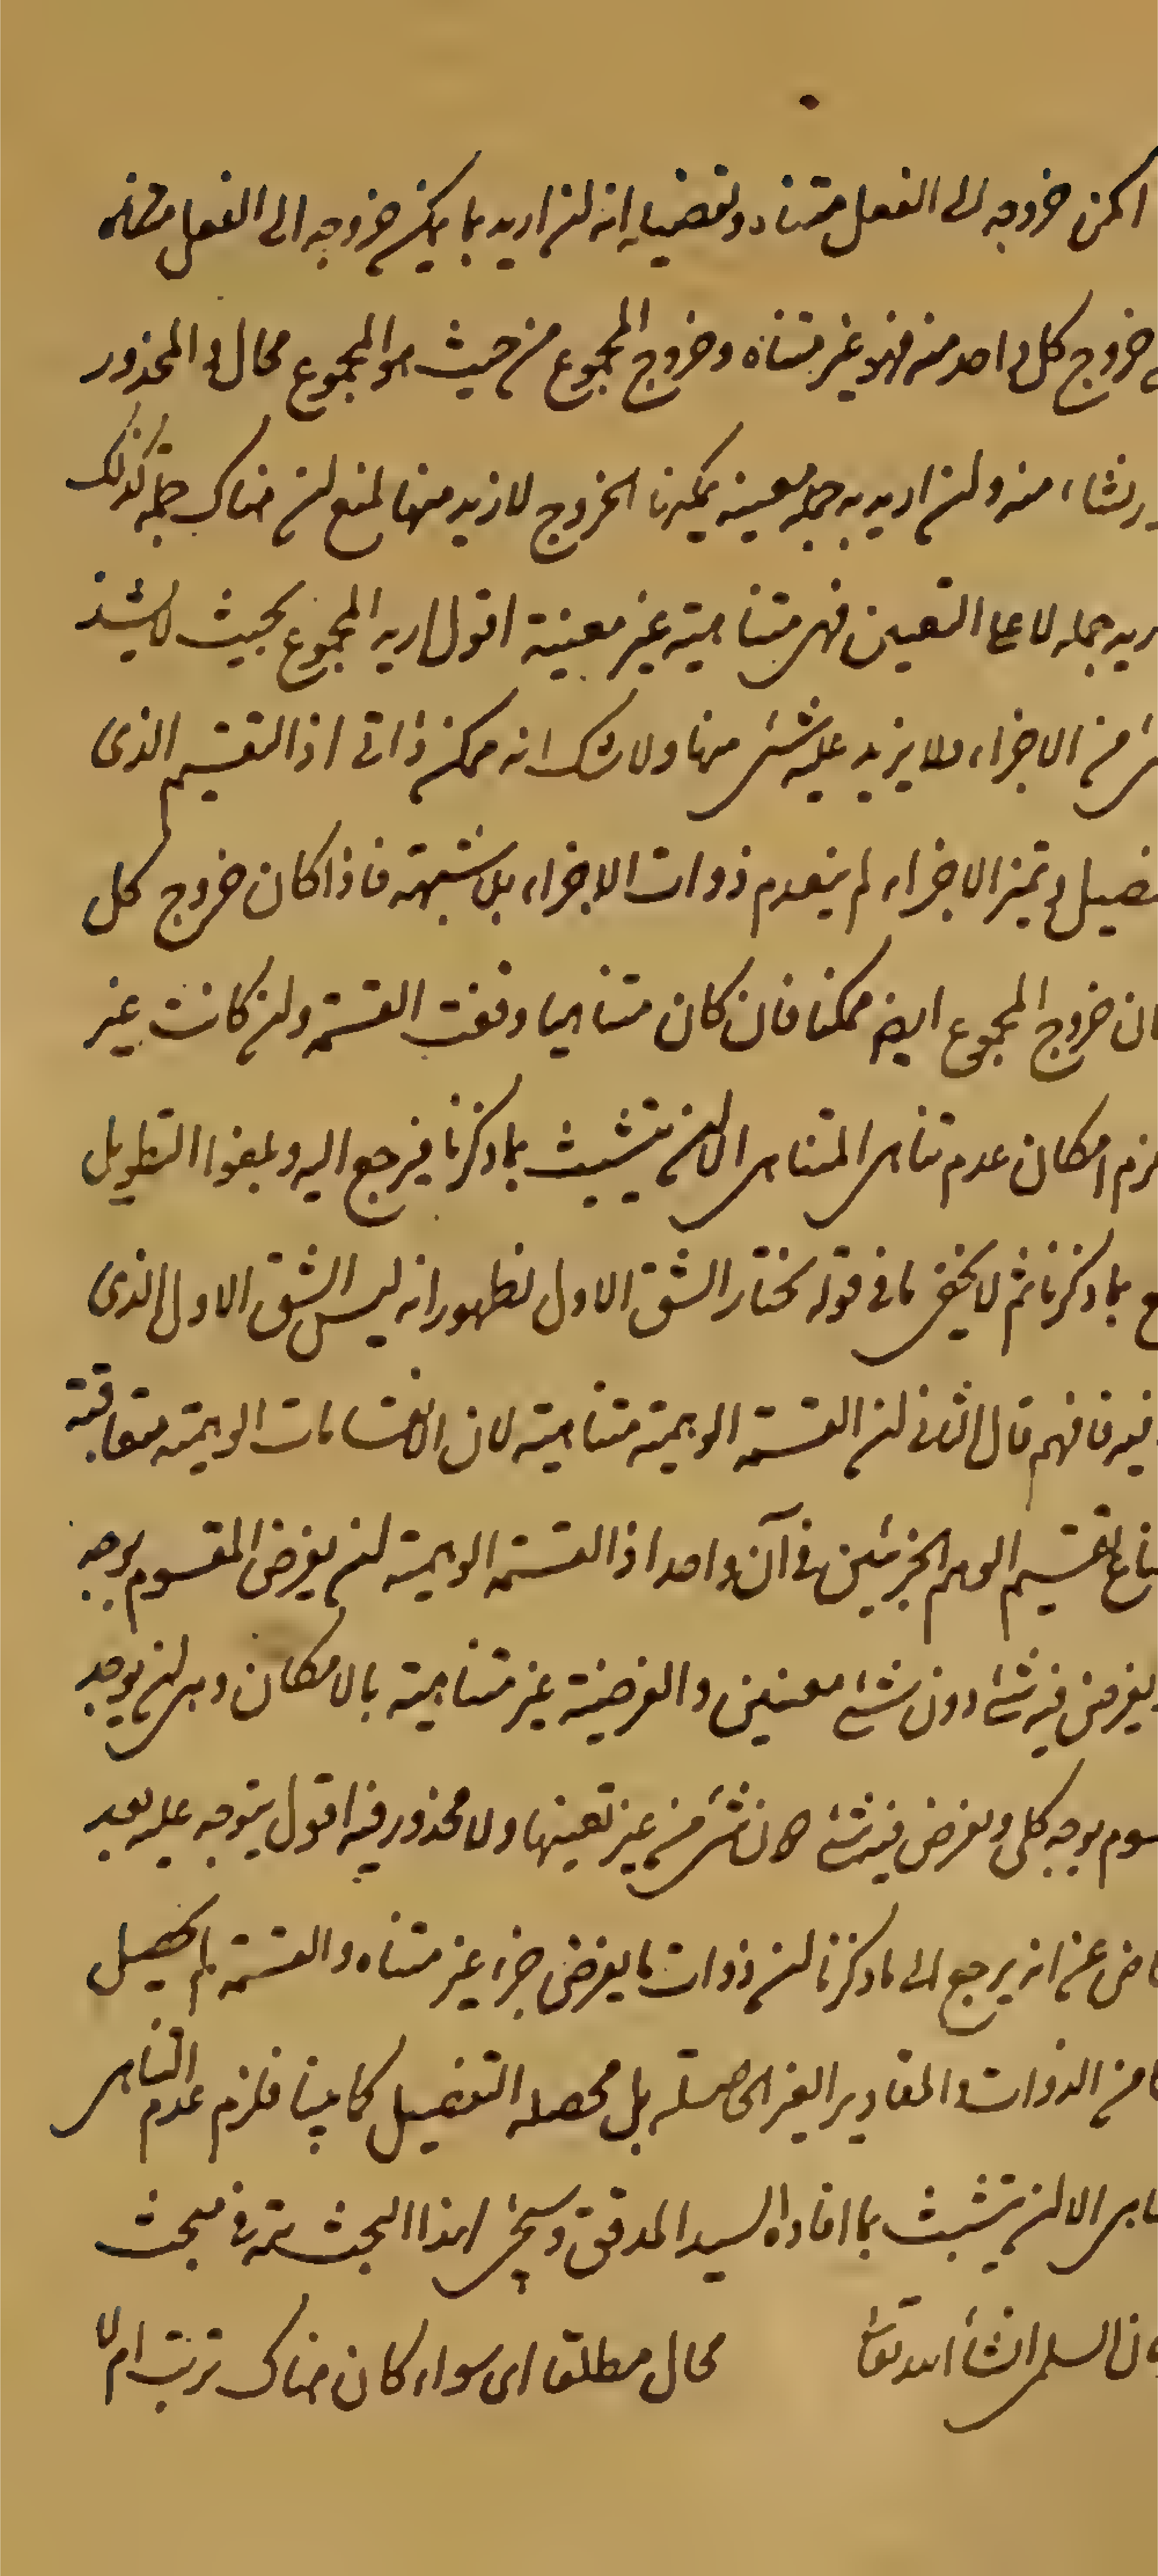 امكن خروجه الى الفعل متناه وتفصيله انه ان اريد بما يمكن خروجه الى الفعل متناه
خروج كل واحد منه فهو غير متناه وخروج المجموع من حيث هو المجموع محال والمحذور
منه وان اريد به جملة معينة يمكنها الخروج لا ازيد منها لمنع ان هناك جملة كذلك
جملة لا على التعيين فهى متناهية غير معينة اقول اريد المجموع بحيث لا يشذ
من الاجزاء ولا يزيد عليه شئ منها ولا شك انه ممكن ذاتى اذ التقسيم الذى
وتميز الاجزاء لم ينعدم ذوات الاجزاء بلا شبهة فاذا كان خروج كل
خروج المجموع ايضا ممكنا فان كان متناهيا وقفت القسمة وان كانت غير
امكان عدم تناهى المتناهى الا ان يتشبث بما ذكرنا فيرجع اليه ويلغوا التطويل
بما ذكرنا ثم لا يخفى ما فى قوله نختار الشق الاول لظهور انه ليس الشق الاول الذى
فافهم قال الثانى ان القسمة الوهمية متناهية لان الانقسامات الوهمية متعاقبة
تقسيم الوهم الجزئين فى آن واحد اذ القسمة الوهمية ان يفرض المقسوم بوجه
يفرض فيه شئ دون شئ معينين والفرضية غير متناهية بالامكان وهى ان يوجد
بوجه كلى ويفرض فيه شئ دون شئ من غير تعينها ولا محذور فيه اقول يتوجه عليه بعد
عن انه يرجع الى ما ذكرنا ان ذوات ما يفرض جزء غير متناه والقسمة لم يحصل
من الذوات والمقادير الغير الحاصلة بل محصله التفصيل كما بينا فلزم عدم التناهى
الا ان يتشبث بما افاده السيد المدقق وسيجئ هذا البحث تتمة فى مبحث
السلمى انشاء الله تعالى محال مطلقا اى سواء كان هناك ترتب ام لا